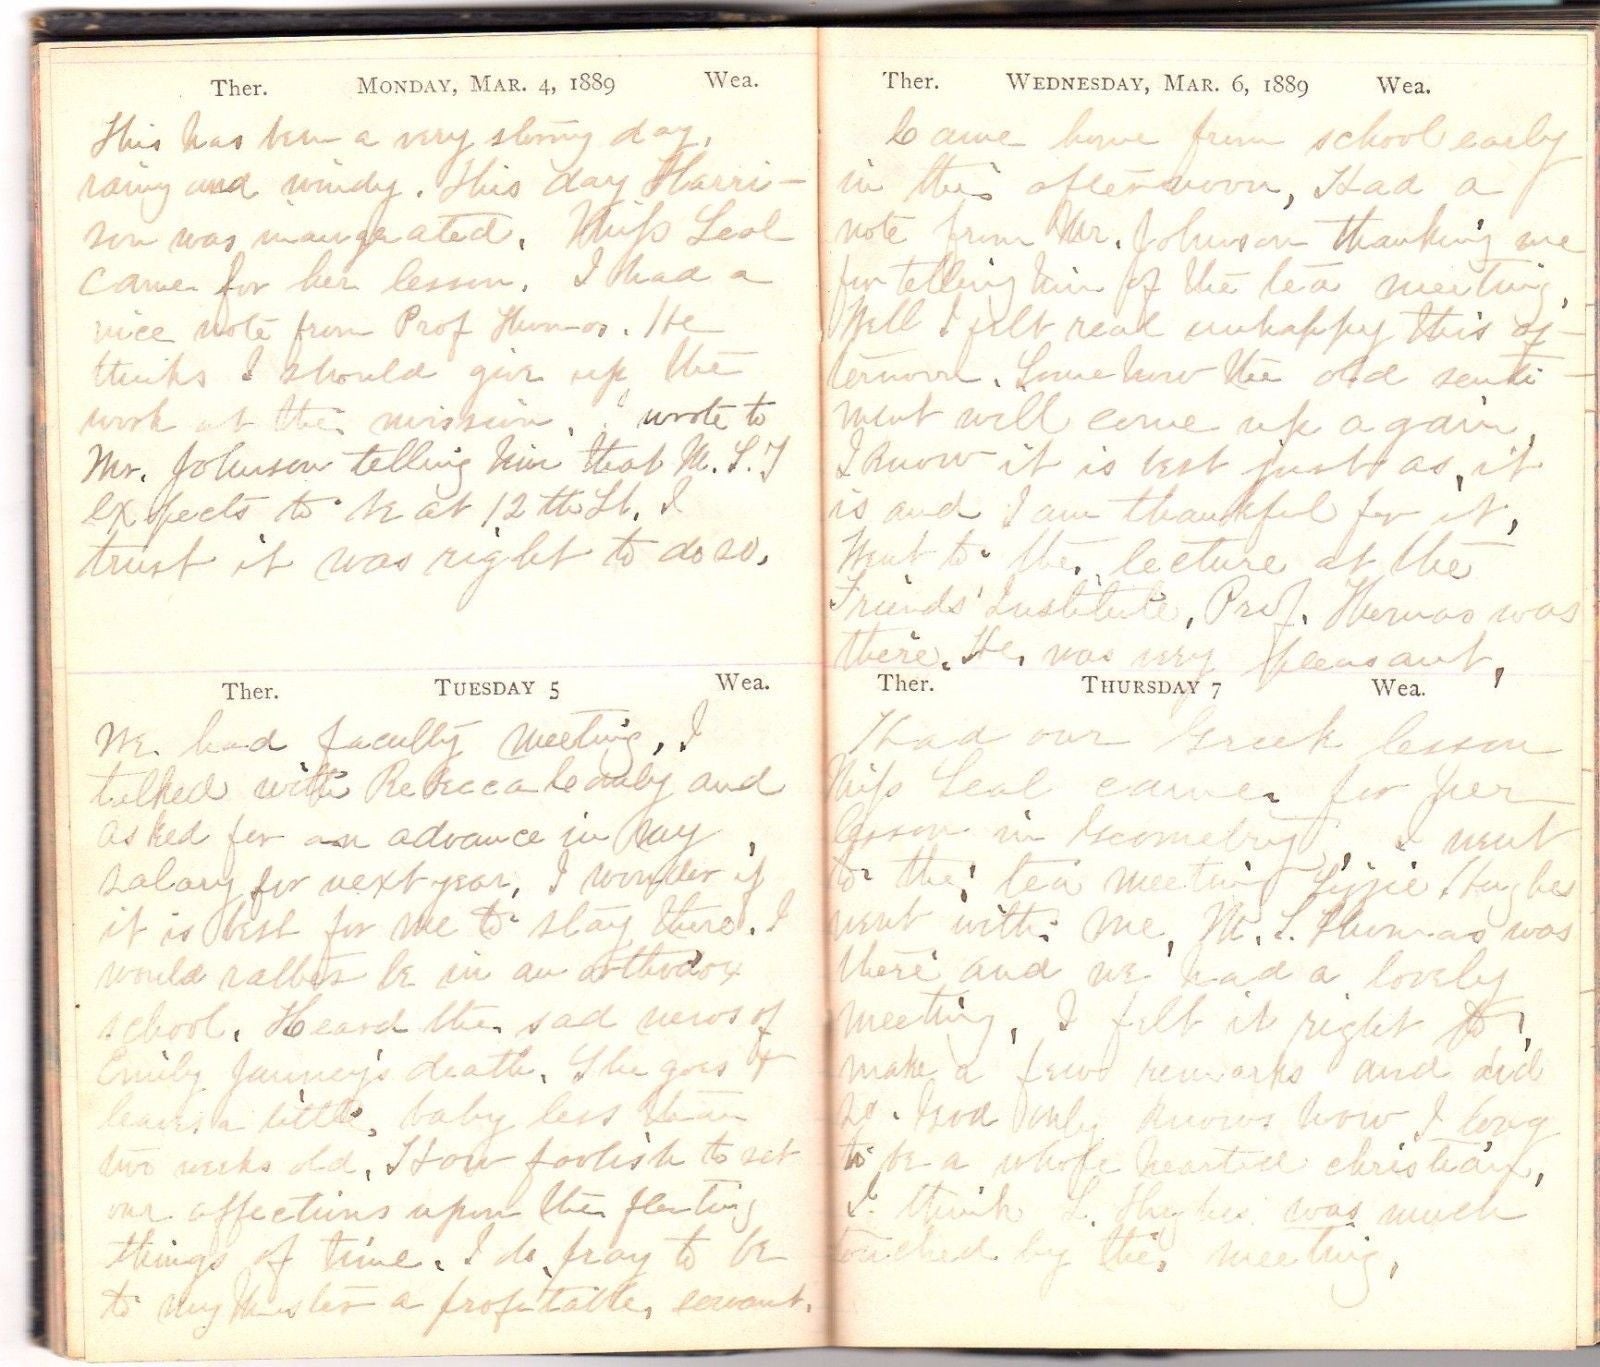 Ther. MONDAY, MAR. 4, 1889 Wea.
This has been a very stormy day,
rainy and windy. This day Harri-
son was inaugurated. Miss Leal
came for her lesson. I had a
nice note from Prof Thomas. He
thinks I should give up the
work at the mission. I wrote to
Mr. Johnson telling him that M. L. T
expects to be at 12th St. I
trust it was right to do so.
Ther. TUESDAY 5 Wea.
We had faculty meeting, I
talked with Rebecca and
asked for an advance in my
salary for next year, I wonder if
it is best for me to stay there. I
would rather be in an orthodox
school. Heard the sad news of
Emily Janney's death. She goes &
leaves a little baby less than
two weeks old. How foolish to set
our affections upon the fleeting
things of time. I do pray to be
to my Master a profitable servant.
Ther. WEDNESDAY, MAR. 6, 1889 Wea.
Came home from school early
in this afternoon, Had a
note from Mr. Johnson thanking me
for telling him of the tea meeting,
Well I felt real unhappy this af-
ternoon. Somehow the old senti-
ment will come up again,
I know it is best just as it
is and I am thankful for it,
Went to the lecture at the
Friends' Institute, Prof. Thomas was
there. He was very pleasant,
Ther. THURSDAY 7 Wea.
Had our Greek lesson
Miss Leal came for her
lesson in Geometry, I went
to the tea meeting Lizzie Hughes
went with me, M. L. Thomas was
there and we had a lovely
meeting, I felt it right to
make a few remarks and did
so. God only knows how I long
to be a whole hearted christian,
I think L. Hughes was much
touched by the meeting,